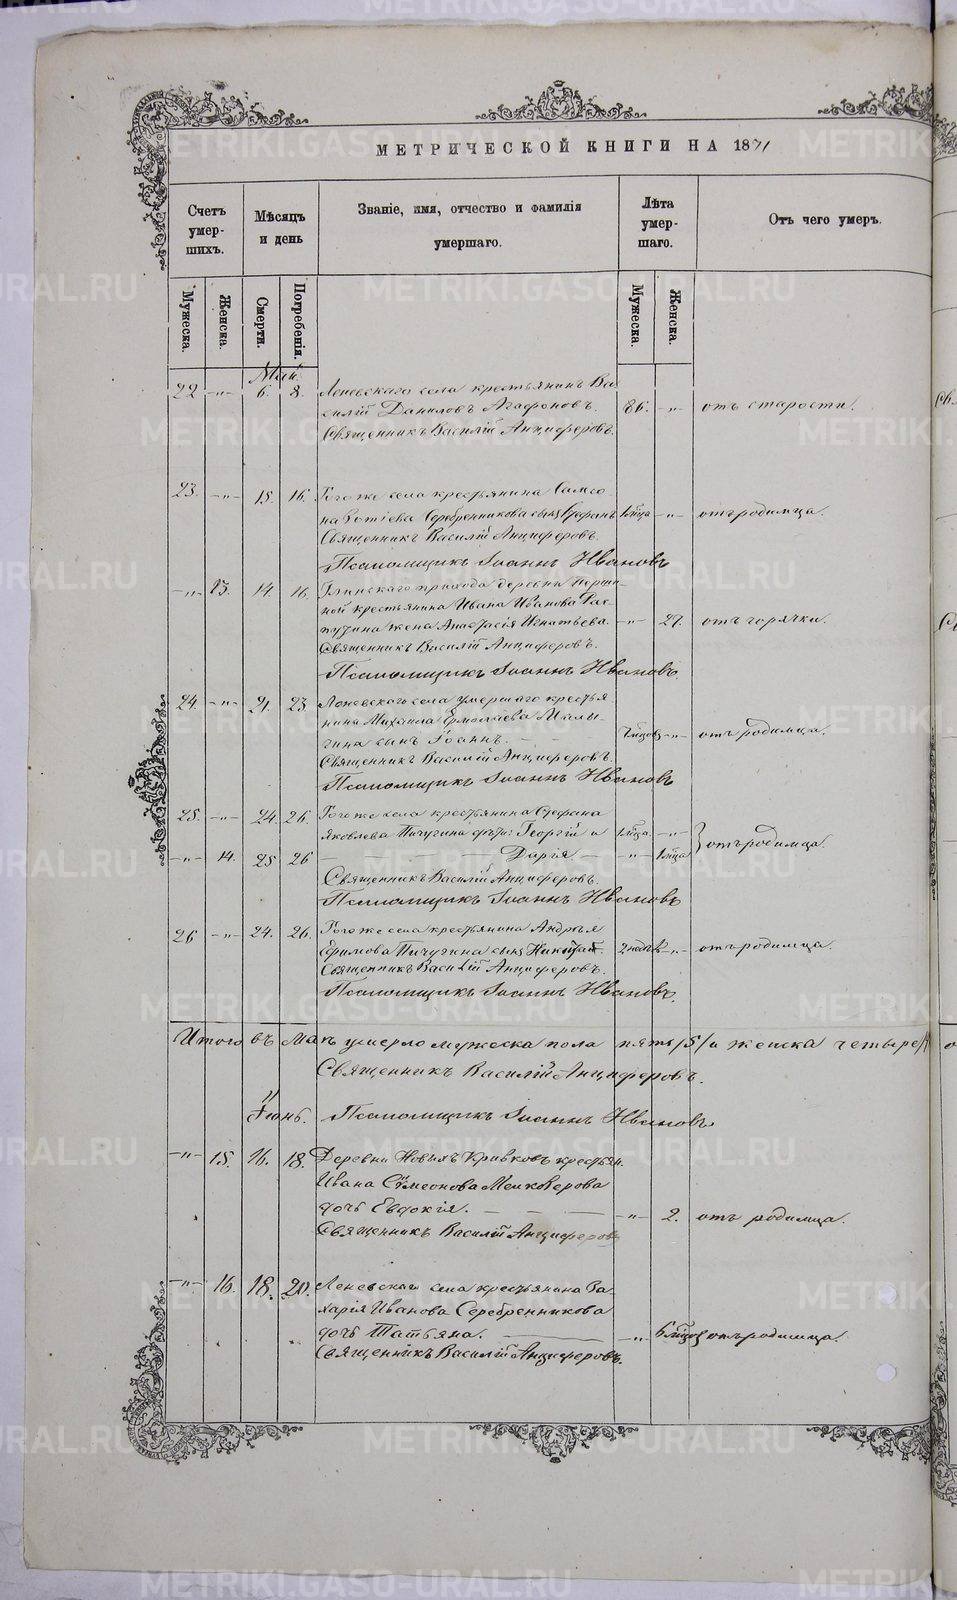 МЕТРИЧЕСКОЙ КНИГИ НА 1871
Счетъ умер-шихъ.
Мѣсяцъ и день
Званіе, имя, отчество и фамилія умершаго.
Лѣта умер-шаго.
Отъ чего умеръ.
Мужеска.
Женска.
Смерти.
Погребенія.
Мужеска.
Женска.
Май.
22 -"- 6. 8. Леневскаго села крестьянинъ Ва-
силій Даниловъ Агафоновъ. 86. -"- отъ старости.
Священникъ Василій Анциферовъ.
23. -"- 15. 16. Того же села крестьянина Самсо-
на Зотіева Серебренникова сынъ Стефанъ 1 мѣсяца -"- отъ родимца.
Священникъ Василій Анциферовъ.
Псаломщикъ Іоаннъ Ивановъ
-"- 13. 14. 16. Глинскаго прихода деревни Перши-
ной крестьянина Ивана Иванова Рас-
путина жена Анастасія Игнатьева. -"- 27. отъ горячки.
Священникъ Василій Анциферовъ.
Псаломщикъ Іоаннъ Ивановъ.
24. -"- 21. 23. Леневскаго села умершаго крестья-
нина Михаила Ермолаева Малы-
гина сынъ Іоаннъ. -"- отъ родимца.
Священникъ Василій Анциферовъ.
Псаломщикъ Іоаннъ Ивановъ
25. -"- 24. 26. Того же села крестьянина Стефана
Яковлева Пичугина дѣти: Георгій и 1 мѣсяца. -"-
-"- 14. 25 26 Дарія -"- 1 мѣсяца отъ родимца.
Священникъ Василій Анциферовъ.
Псаломщикъ Іоаннъ Ивановъ
26 -"- 24. 26. Того же села крестьянина Андрея
Ефимова Пичугина сынъ Никита 2 недѣль -"- отъ родимца.
Священникъ Василій Анциферовъ.
Псаломщикъ Іоаннъ Ивановъ.
Итого въ Маѣ умерло мужеска пола пять /5/ и женска четыре /4
Священникъ Василій Анциферовъ.
Іюнь. Псаломщикъ Іоаннъ Ивановъ
-"- 15. 16. 18. Деревни Новыхъ Кривковъ крестьян.
Ивана Симеонова Мелкозерова
дочь Евдокія. -"- 2. отъ родимца.
Священникъ Василій Анциферовъ
-"- 16. 18. 20. Леневскаго села крестьянина За-
харія Иванова Серебренникова
дочь Татьяна. -"- 6 мѣсяцов отъ родимца.
Священникъ Василій Анциферовъ.
METRIKI.GASO-URAL.RU